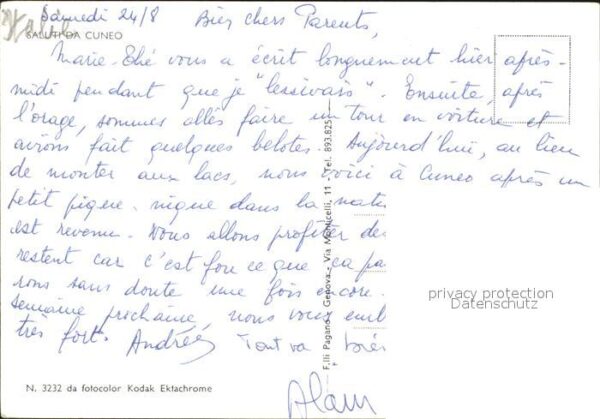 Italie
Samedi 24/8 Bien chers Parents,
SALUTI DA CUNEO
Marie-Thé vous a écrit longuement hier après-
midi pendant que je "lessivais". Ensuite, après
l'orage, sommes allés faire un tour en voiture et
avions fait quelques belotes. Aujourd'hui, au lieu
de monter aux lacs, nous voici à Cuneo après un
petit pique-nique dans la natu
est revenu. Nous allons profiter des
restent car c'est fou ce que ça pa
rons sans doute une fois encore.
semaine prochaine, nous vous emb
très fort. Andrée Tout va
Alain
F.lli Pagano - Genova - Via Monticelli, 11 - Tel. 893.825
N. 3232 da fotocolor Kodak Ektachrome
privacy protection
Datenschutz